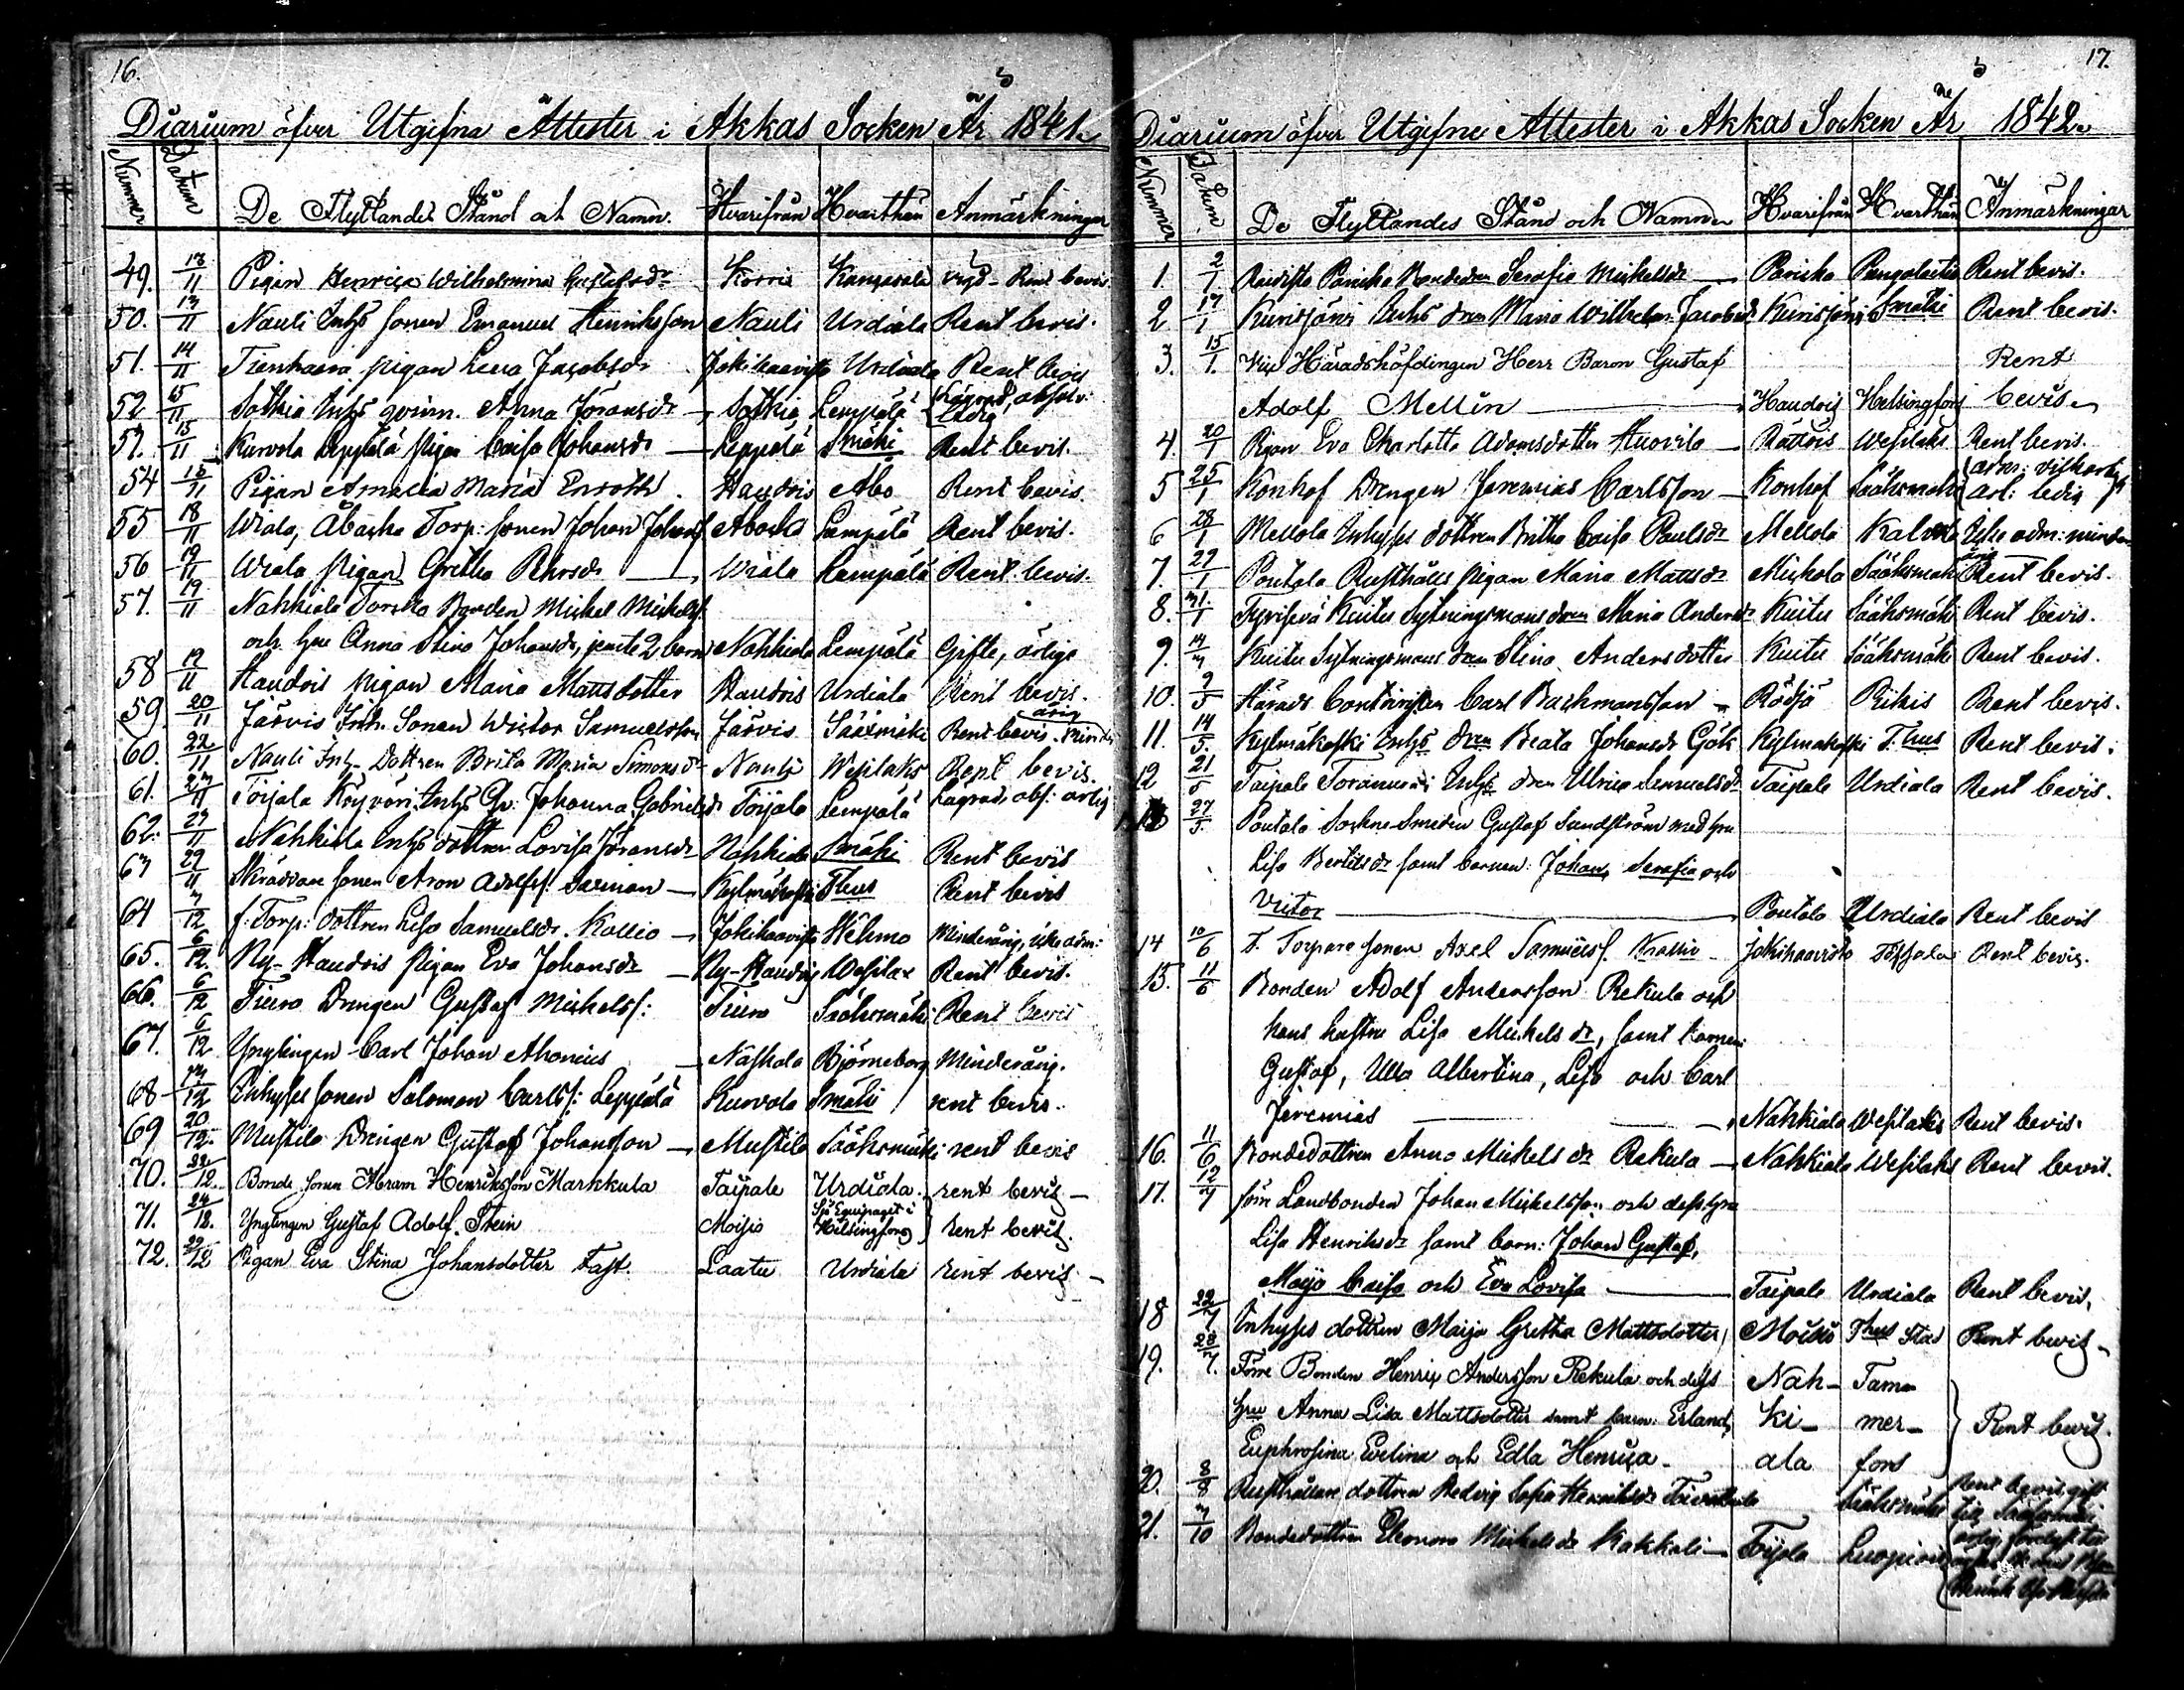 16.
Diarium öfver Utgifna Attester i Akkas Socken År 1841.
Nummer Datum De Flyttandes Stånd och Namn. Hvarifrån Hvarthän Anmärkningar
49. 13/11 Pigan Henrica Wilhelmina Gustafsdr Korris Kangasala Rent bevis
50. 13/11 Nauli Inhs Sonen Emanuel Henriksson Nauli Urdiala Rent bevis.
51. 14/11 pigan Lena Jacobsdr Jokihaavisto Urdiala Rent bevis
52 15/11 Sotkia Inhs qvinn. Anna Jöransdr Sotkia Lempälä Lagvad, absolv. ledig
15/11 Kurvola Leppälä pigan Caisa Johansdr Leppälä Smäki Rent bevis.
54 15/11 Pigan Amalia Maria Enroth. Haudois Åbo Rent bevis.
55 18/11 Wiala, Åbacka Torp: sonen Johan Johansf Abacka Lempälä Rent bevis.
56 19/11 Wiala Pigan Gretha Pehrsdr Wiala Lempälä Rent bevis.
57. 19/11 Nahkiala Torkko Bonden Michel Michelsf.
och hu Anna Stina Johansdr, jemte 2 barn Nahkiala Lempälä Gifte, ärliga
58 19/11 Haudois pigan Maria Mattsdotter Haudois Urdiala Rent bevis.
59. 20/11 Järvis Inh. Sonen Wictor Samuelsson Järvis Sääxmäki Rent bevis. minderårig
60. 22/11 Nauli Inh. Dottren Brita Maria Simonsdr Nauli Wesilaks Rent bevis.
61. 27/11 Toijala Köyvöri Inhs Qv: Johanna Gabrielsdr Toijala Lempälä Lagvad, abs: ärlig
62. 29/11 Nahkiala Inhs dottren Lovisa Jöransdr Nahkiala Smäki Rent bevis
63 29/11 Skräddare sonen Aron Adolfsf. Saxman Kylmäkoski Thus Rent bevis
64 3/12 f. Torp: dottren Lisa Samuelsdr. Kallio Jokihaavisto Wehmo Minderårig, icke adm:
65. 6/12. Ny-Haudois Pigan Eva Johansdr Ny-Haudois Wesilax Rent bevis.
66. 6/12 Tiura Drengen Gustaf Michelsf: Tiura Sääksmäki Rent bevis
67. 6/12 Ynglingen Carl Johan Ahonius Näskala Björneborg Minderårig.
68 13/12 Inhyses sonen Salomon Carlsf: Leppälä Kurvola Smäki rent bevis.
69 20/12. Mustila Drengen Gustaf Johansson Mustila Sääksmäki rent bevis
70. 22/12. Bonde sonen Abram Henriksson Markkula Taipale Urdiala. rent bevis
71. 24/12. Ynglingen Gustaf Adolf Stein Moisio Sjö Equipaget i Helsingfors rent bevis.
72. 29/12 Pigan Eva Stina Johansdotter Fast. Laatu Urdiala rent bevis
17.
Diarium öfver Utgifne Attester i Akkas Socken År 1842.
Nummer Datum. De Flyttandes Stånd och Namn Hvarifrån Hvarthän Anmärkningar
1. 2/1 Paricka Bondedren Serafia Michelsdr Paricka Rent bevis.
2 17/1 Kurisjärvi Inhs dren Maria Wilhelm. Jacobsdr Kurisjärvi Smäki Rent bevis.
3. 15/1. Vice Häradshöfdingen Herr Baron Gustaf Rent
Adolf Mellin Haudois Helsingfors bevis.
4. 20/1 Pigan Eva Charlotta Adamsdotter Huovila Rättois Wesilaks Rent bevis.
5 25/1 Konhof Drengen Jeremias Carlsson Konhof Sääksmäki
6 28/1 Mellola Inhyses dottren Britha Caisa Paulsdr Mellola Kalvola Icke adm: minderårig
7. 29/1 Pontala Rusthålls pigan Maria Mattsdr Mickola Sääksmäki Rent bevis.
8. 31/1 Kuitu Sytningsmans dren Maria Andersdr Kuitu Sääksmäki Rent bevis.
9. 14/3 Kuitu Sytningsmans dren Stina Andersdotter Kuitu Sääksmäki Rent bevis.
10. 9/5 Härads Carl Bachmansson Rödjä Pikis Rent bevis.
11. 14/5. Kylmäkoski Inhs dren Beata Johansdr Gök Kylmäkoski T. hus Rent bevis.
12 21/5 Taipale Inhs dren Ulrica Samuelsdr Taipale Urdiala Rent bevis.
13 27/5. Pontala Sockne Smeden Gustaf Sundström med hu
Lisa Bertilsdr samt barnen: Johan, Serafia och
Victor Pontala Urdiala Rent bevis
14 10/6 F. Torpare sonen Axel Samuelsf. Kallio Jokihaavisto Rent bevis.
15. 11/6 Bonden Adolf Andersson Rekula och
hans hustru Lisa Michelsdr, samt barnen:
Gustaf, Ulla Albertina, Lisa och Carl
Jeremias Nahkiala Wesilaks Rent bevis.
16. 11/6 Bondedottren Anna Michelsdr Rekula Nahkiala Wesilaks Rent bevis.
17. 12/7 förre Landbonden Johan Michelsson och dess hu
Lisa Henriksdr samt barn: Johan Gustaf,
Maija Caisa och Eva Lovisa Taipale Urdiala Rent bevis.
18 22/7 Inhyses dottren Maija Gretha Mattsdotter Moisio Thus Stad Rent bevis
19. 28/7. Förre Bonden Henrix Andersson Rekula och dess Nah- Tam-
hu Anna Lisa Mattsdotter samt barn: Erland, ki- mer- Rent bevis.
Euphrosina Evelina och Edla Henrica ala fors
20. 8/8 Rusthållare dottren Hedvig Sofia Henriksdr Sääksmäki Rent bevis gift
till Sääksmäki
21. 3/10 Bondedottren Eleonora Michelsdr Kakkali Toijala Luopiois